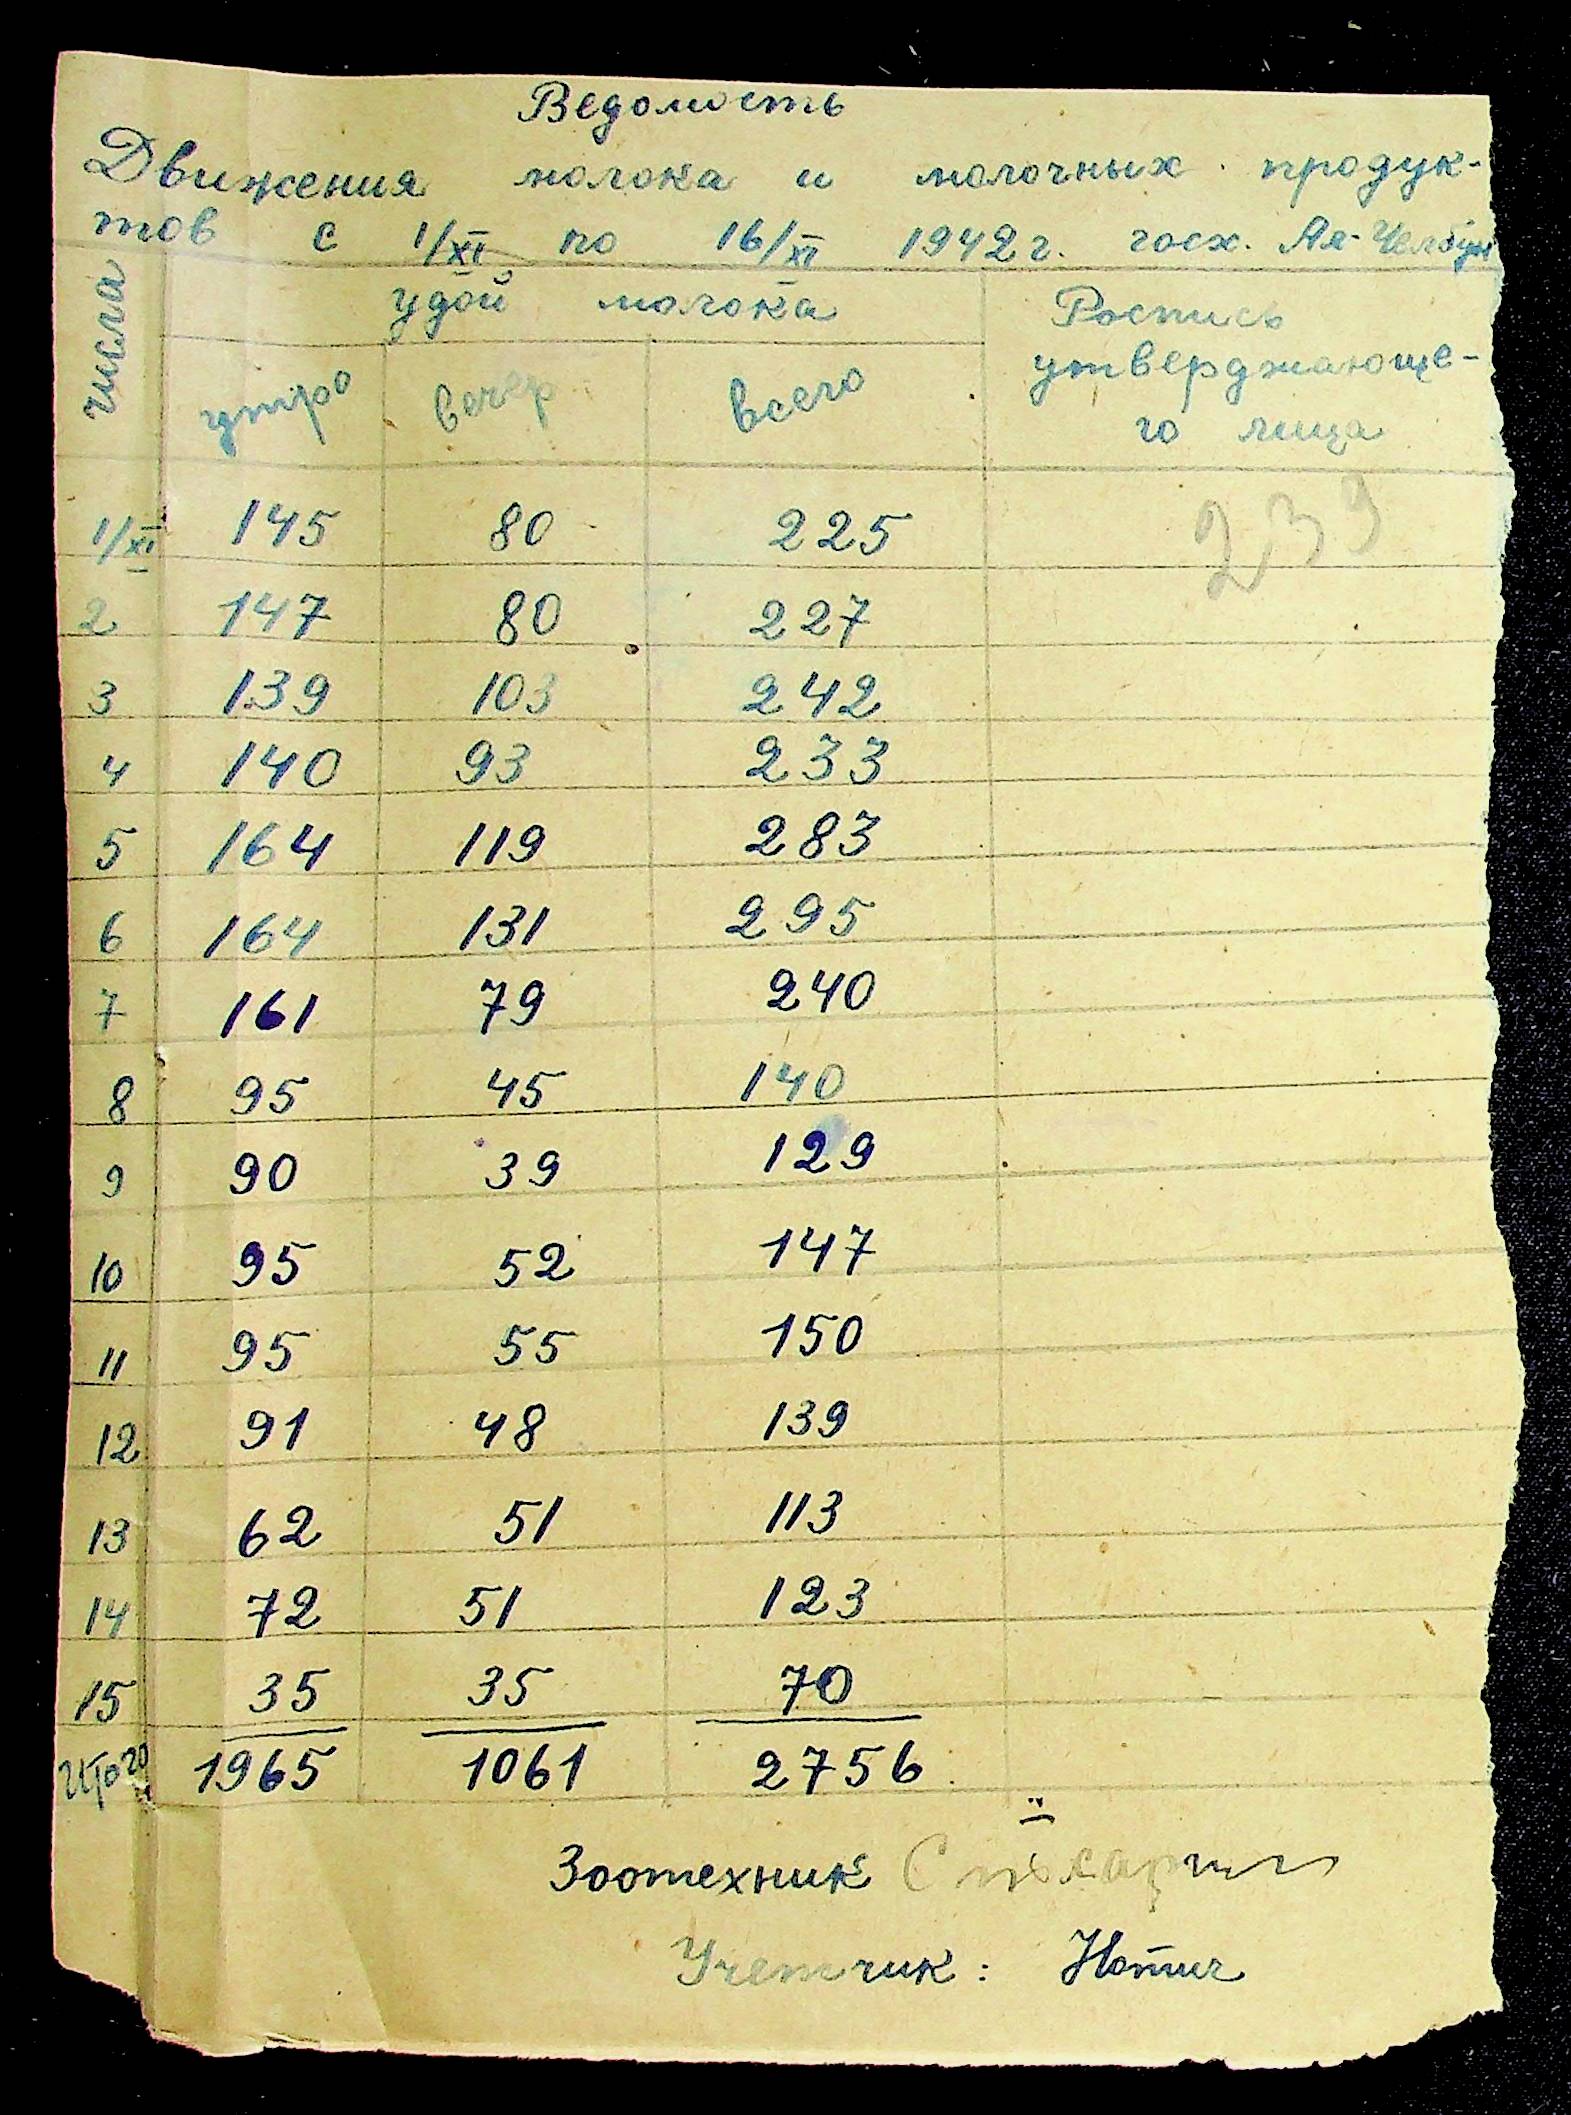 Ведомость
Движения молока и молочных продук-
тов с 1/XI по 16/XI 1942 г. госх.
числа удой молока Роспись
утверждающе-
го лица
утро вечер всего
239
1/XI 145 80 225
2 147 80 227
3 139 103 242
4 140 93 233
5 164 119 283
6 164 131 295
7 161 79 240
8 95 45 140
9 90 39 129
10 95 52 147
11 95 55 150
12 91 48 139
13 62 51 113
14 72 51 123
15 35 35 70
Итого 1965 1061 2756
Зоотехник
Учетчик: